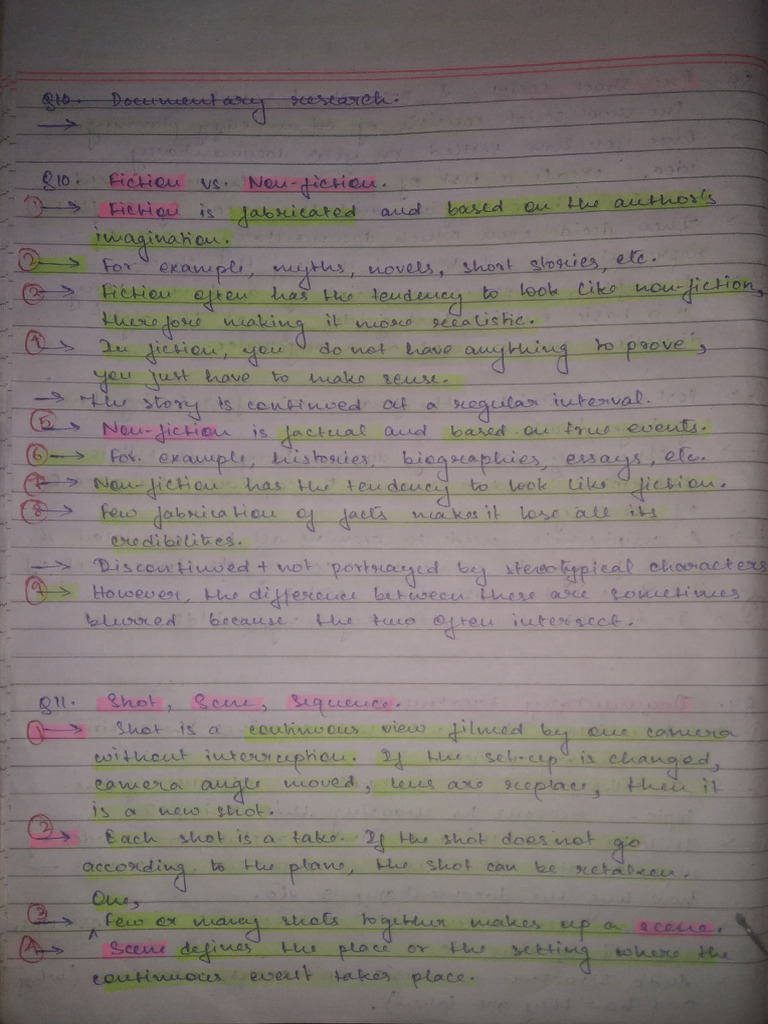 Q10. Documentary research.
→
Q10. Fiction vs. Non-fiction.
① → Fiction is fabricated and based on the author's
imagination.
② → For example, myths, novels, short stories, etc.
③ → Fiction often has the tendency to look like non-fiction,
therefore making it more realistic.
④ → In fiction, you do not have anything to prove,
you just have to make sense.
→ The story is continued at a regular interval.
⑤ → Non-fiction is factual and based on true events.
⑥ → For example, histories, biographies, essays, etc.
⑦ → Non-fiction has the tendency to look like fiction.
⑧ → Few fabrication of facts makes it lose all its
credibilities.
→ Discontinued + not portrayed by stereotypical characters
⑨ → However, the difference between these are sometimes
blurred because the two often intersect.
Q11. Shot, Scene, Sequence.
① → Shot is a continuous view filmed by one camera
without interruption. If the set-up is changed,
camera angle moved, lens are replace, then it
is a new shot.
② → Each shot is a take. If the shot does not go
according to the plane, the shot can be retaken.
One,
③ → Few or many shots together makes up a scene.
④ → Scene defines the place or the setting where the
continuous event takes place.